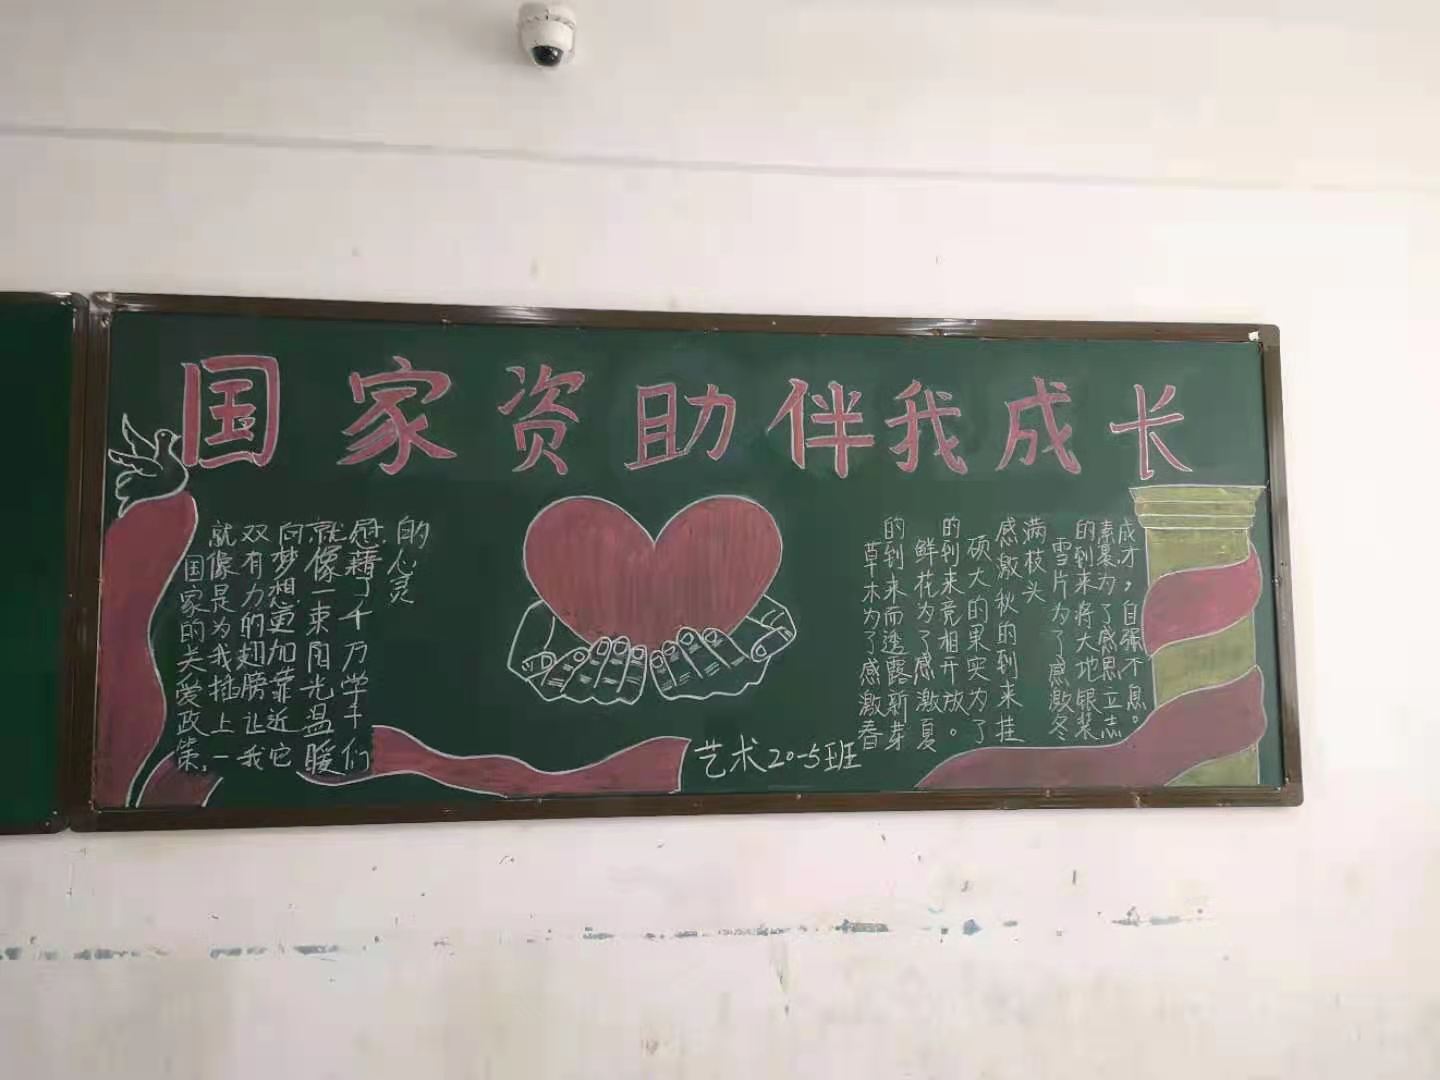 国家资助伴我成长
国家的关爱政策,
就像是为我插上一
双有力的翅膀让我
向梦想更加靠近它
就像一束阳光温暖
慰藉了千万学子们
的心灵
草木为了感激春
的到来而透露新芽
鲜花为了感激夏
的到来竞相开放。
硕大的果实为了
感激秋的到来挂
满枝头
雪片为了感激冬
的到来将大地银装
素裹为了感恩立志
成才，自强不息。
艺术20-5班